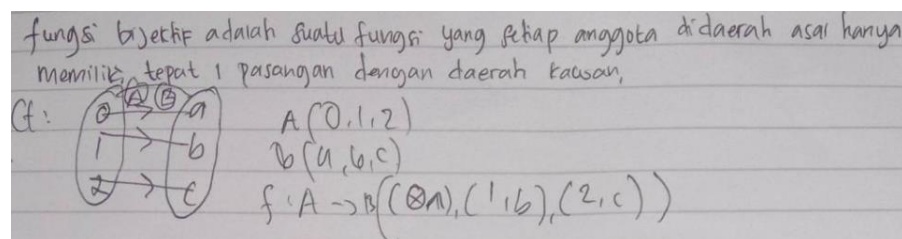 fungsi bijektif adalah suatu fungsi yang setiap anggota didaerah asal hanya
memiliki tepat 1 pasangan dengan daerah kawan,
Ct:
A B
0 → a
1 → b
2 → c
A (0,1,2)
b (a,b,c)
f : A → B ((0,a),(1,b),(2,c))